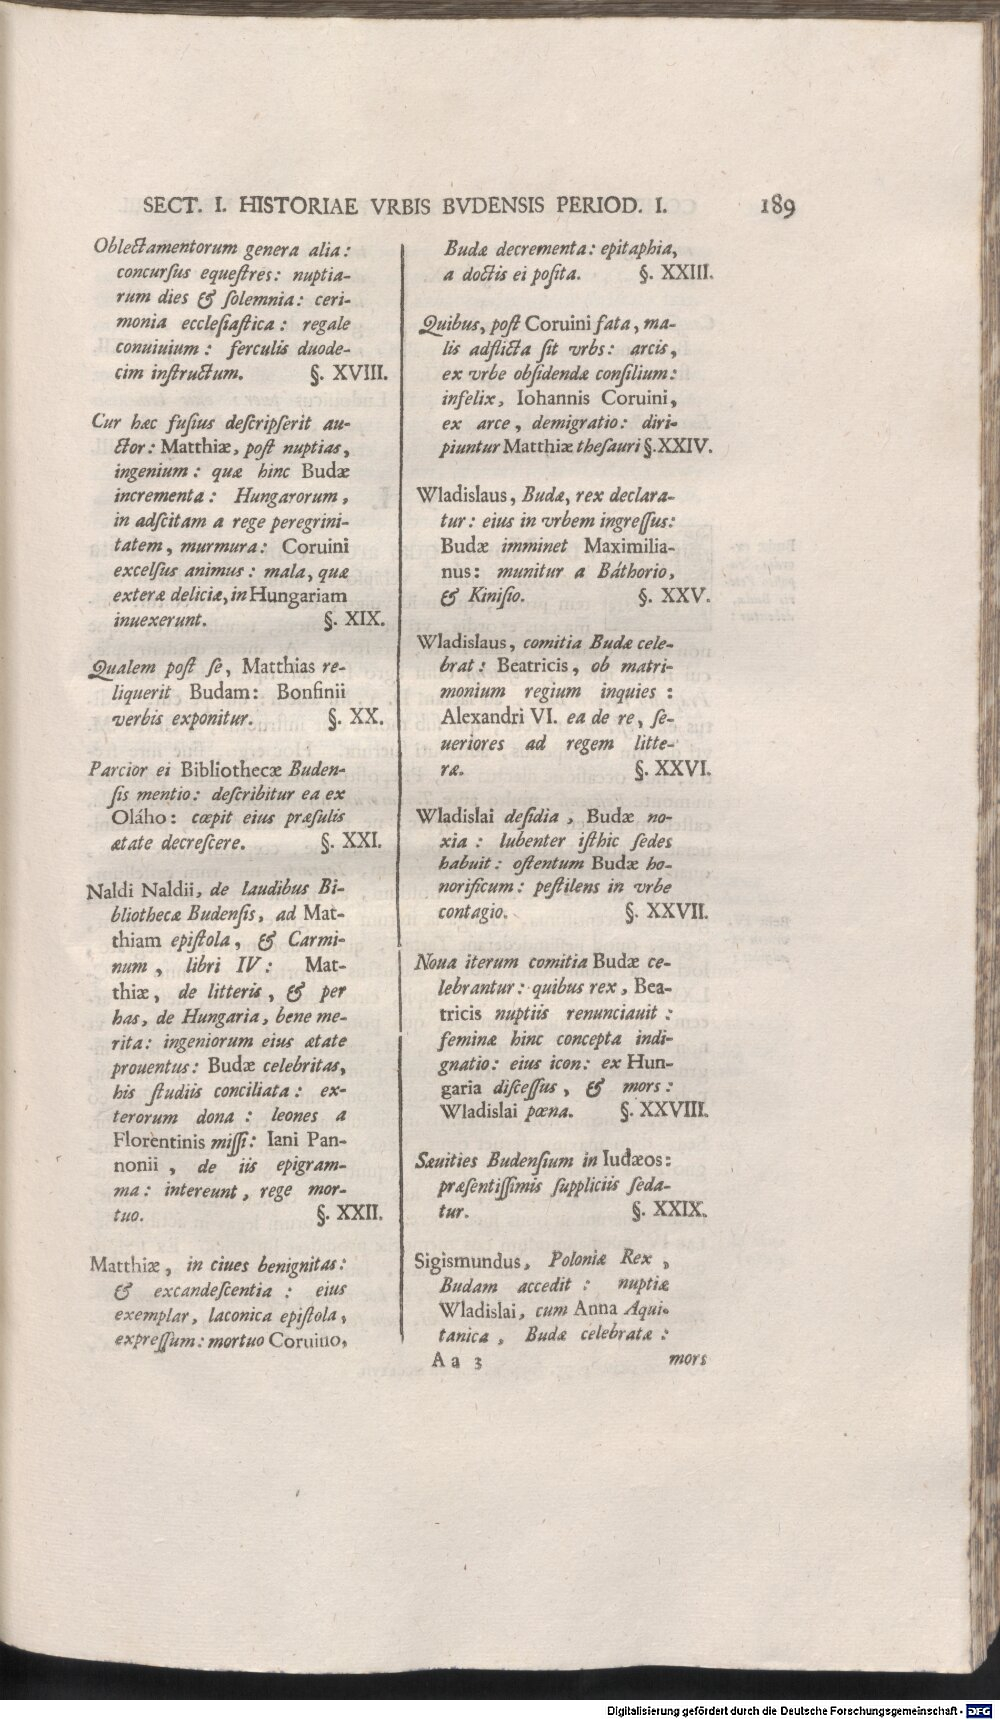 SECT. I. HISTORIAE VRBIS BVDENSIS PERIOD. I. 189
Oblectamentorum genera alia:
concurſus equeſtres: nuptia-
rum dies & ſolemnia: ceri-
monia eccleſiaſtica: regale
conuiuium: ferculis duode-
cim inſtructum. §. XVIII.
Cur hæc fuſius deſcripſerit au-
ctor: Matthiæ, poſt nuptias,
ingenium: quæ hinc Budæ
incrementa: Hungarorum,
in adſcitam a rege peregrini-
tatem, murmura: Coruini
excelſus animus: mala, quæ
exteræ deliciæ, in Hungariam
inuexerunt. §. XIX.
Qualem poſt ſe, Matthias re-
liquerit Budam: Bonfinii
verbis exponitur. §. XX.
Parcior ei Bibliothecæ Buden-
ſis mentio: deſcribitur ea ex
Oláho: cœpit eius præſulis
ætate decreſcere. §. XXI.
Naldi Naldii, de laudibus Bi-
bliothecæ Budenſis, ad Mat-
thiam epiſtola, & Carmi-
num, libri IV: Mat-
thiæ, de litteris, & per
has, de Hungaria, bene me-
rita: ingeniorum eius ætate
prouentus: Budæ celebritas,
his ſtudiis conciliata: ex-
terorum dona: leones a
Florentinis miſſi: Iani Pan-
nonii, de iis epigram-
ma: intereunt, rege mor-
tuo. §. XXII.
Matthiæ, in ciues benignitas:
& excandeſcentia: eius
exemplar, laconica epiſtola,
expreſſum: mortuo Coruino,
Budæ decrementa: epitaphia,
a doctis ei poſita. §. XXIII.
Quibus, poſt Coruini fata, ma-
lis adflicta ſit vrbs: arcis,
ex vrbe obſidendæ conſilium:
infelix, Iohannis Coruini,
ex arce, demigratio: diri-
piuntur Matthiæ theſauri §. XXIV.
Wladislaus, Budæ, rex declara-
tur: eius in vrbem ingreſſus:
Budæ imminet Maximilia-
nus: munitur a Báthorio,
& Kiniſio. §. XXV.
Wladislaus, comitia Budæ cele-
brat: Beatricis, ob matri-
monium regium inquies:
Alexandri VI. ea de re, ſe-
ueriores ad regem litte-
ræ. §. XXVI.
Wladislai deſidia, Budæ no-
xia: lubenter iſthic ſedes
habuit: oſtentum Budæ ho-
norificum: peſtilens in vrbe
contagio. §. XXVII.
Noua iterum comitia Budæ ce-
lebrantur: quibus rex, Bea-
tricis nuptiis renunciauit:
feminæ hinc concepta indi-
gnatio: eius icon: ex Hun-
garia diſceſſus, & mors:
Wladislai pœna. §. XXVIII.
Sæuities Budenſium in Iudæos:
præſentiſſimis ſuppliciis ſeda-
tur. §. XXIX.
Sigismundus, Poloniæ Rex,
Budam accedit: nuptiæ
Wladislai, cum Anna Aqui-
tanica, Budæ celebratæ:
A a 3 mors
Digitalisierung gefördert durch die Deutsche Forschungsgemeinschaft - DFG